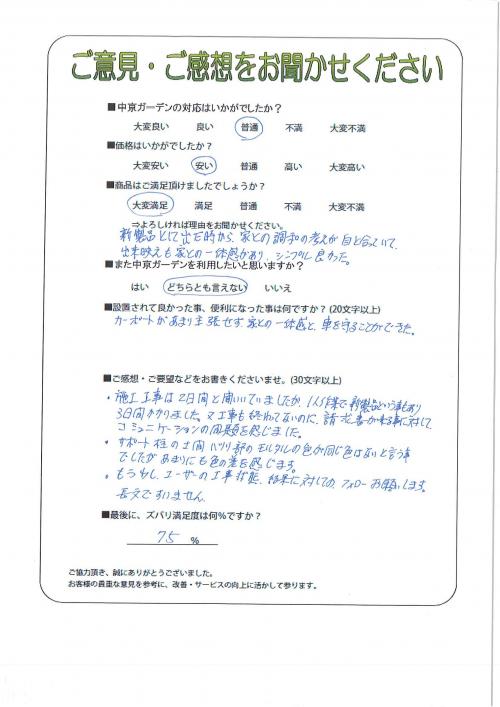 ご意見・ご感想をお聞かせください
■中京ガーデンの対応はいかがでしたか？
大変良い 良い 普通 不満 大変不満
■価格はいかがでしたか？
大変安い 安い 普通 高い 大変高い
■商品はご満足頂けましたでしょうか？
大変満足 満足 普通 不満 大変不満
⇒よろしければ理由をお聞かせください。
新製品として出た時から、家との調和の考えが自と合っていて、
出来映えも家との一体感があり、シンプルで良かった。
■また中京ガーデンを利用したいと思いますか？
はい どちらとも言えない いいえ
■設置されて良かった事、便利になった事は何ですか？(20文字以上)
カーポートがあまり主張せず、家との一体感と、車を守ることができた。
■ご感想・ご要望などをお書きくださいませ。(30文字以上)
・施工工事は2日間と聞いていましたが、1人作業で新製品という事もあり
3日間かかりました。又工事も終わってないのに、請求書が来る事に対して
コミュニケーションの問題を感じました。
・サポート柱の土間ハツリ部のモルタルの色が同じ色はないと言う事
でしたがあまりにも色の差を感じます。
・もう少し、ユーザーの工事状態、結果に対してのフォローお願いします。
長文ですいません
■最後に、ズバリ満足度は何％ですか？
75 ％
ご協力頂き、誠にありがとうございました。
お客様の貴重な意見を参考に、改善・サービスの向上に活かして参ります。